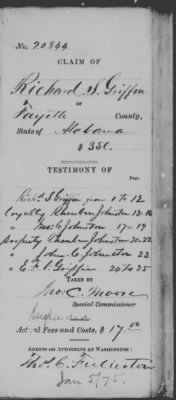 No. 20844
CLAIM OF
Richard S. Griffin
OF
Fayette County,
State of Alabama
$ 350.
TESTIMONY OF
Page.
Rich. S Griffin from 6 to 12
Loyalty Johnston 13-16
" Jno. C Johnston 17-19
Property Johnston 20-22
" John C. Johnston 23.
" E. P. Griffin 24 to 25
TAKEN BY
Jno. C. Moore
Special Commissioner
Actual Fees and Costs, $ 17.00
AGENTS OR ATTORNEYS AT WASHINGTON:
Thos. C. Fullerton
Jan 5/75.